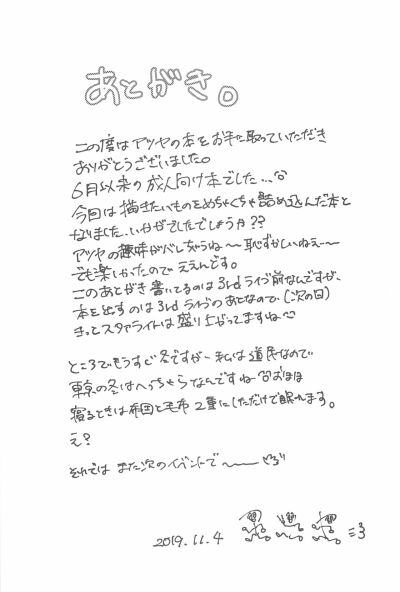 あとがき。
この度はアツヤの本をお手に取っていただき
ありがとうございました。
6月以来の成人向け本でした…
今回は描きたいものをめちゃくちゃ詰め込んだ本と
なりました。いかがでしたでしょうか??
アツヤの趣味がバレちゃうね〜恥ずかしいねぇ〜
でも楽しかったのでええんです。
このあとがき書いてるのは3rdライブ前なんですが、
本を出すのは3rdライブのあとなので(次の日)
きっとスタァライトは盛り上がってますね
ところでもうすぐ冬ですが私は道民なので
東京の冬はへっちゃらなんですね おほほ
寝るときは布団と毛布2重にしただけで眠れます。
え?
それでは また次のイベントで〜
2019.11.4